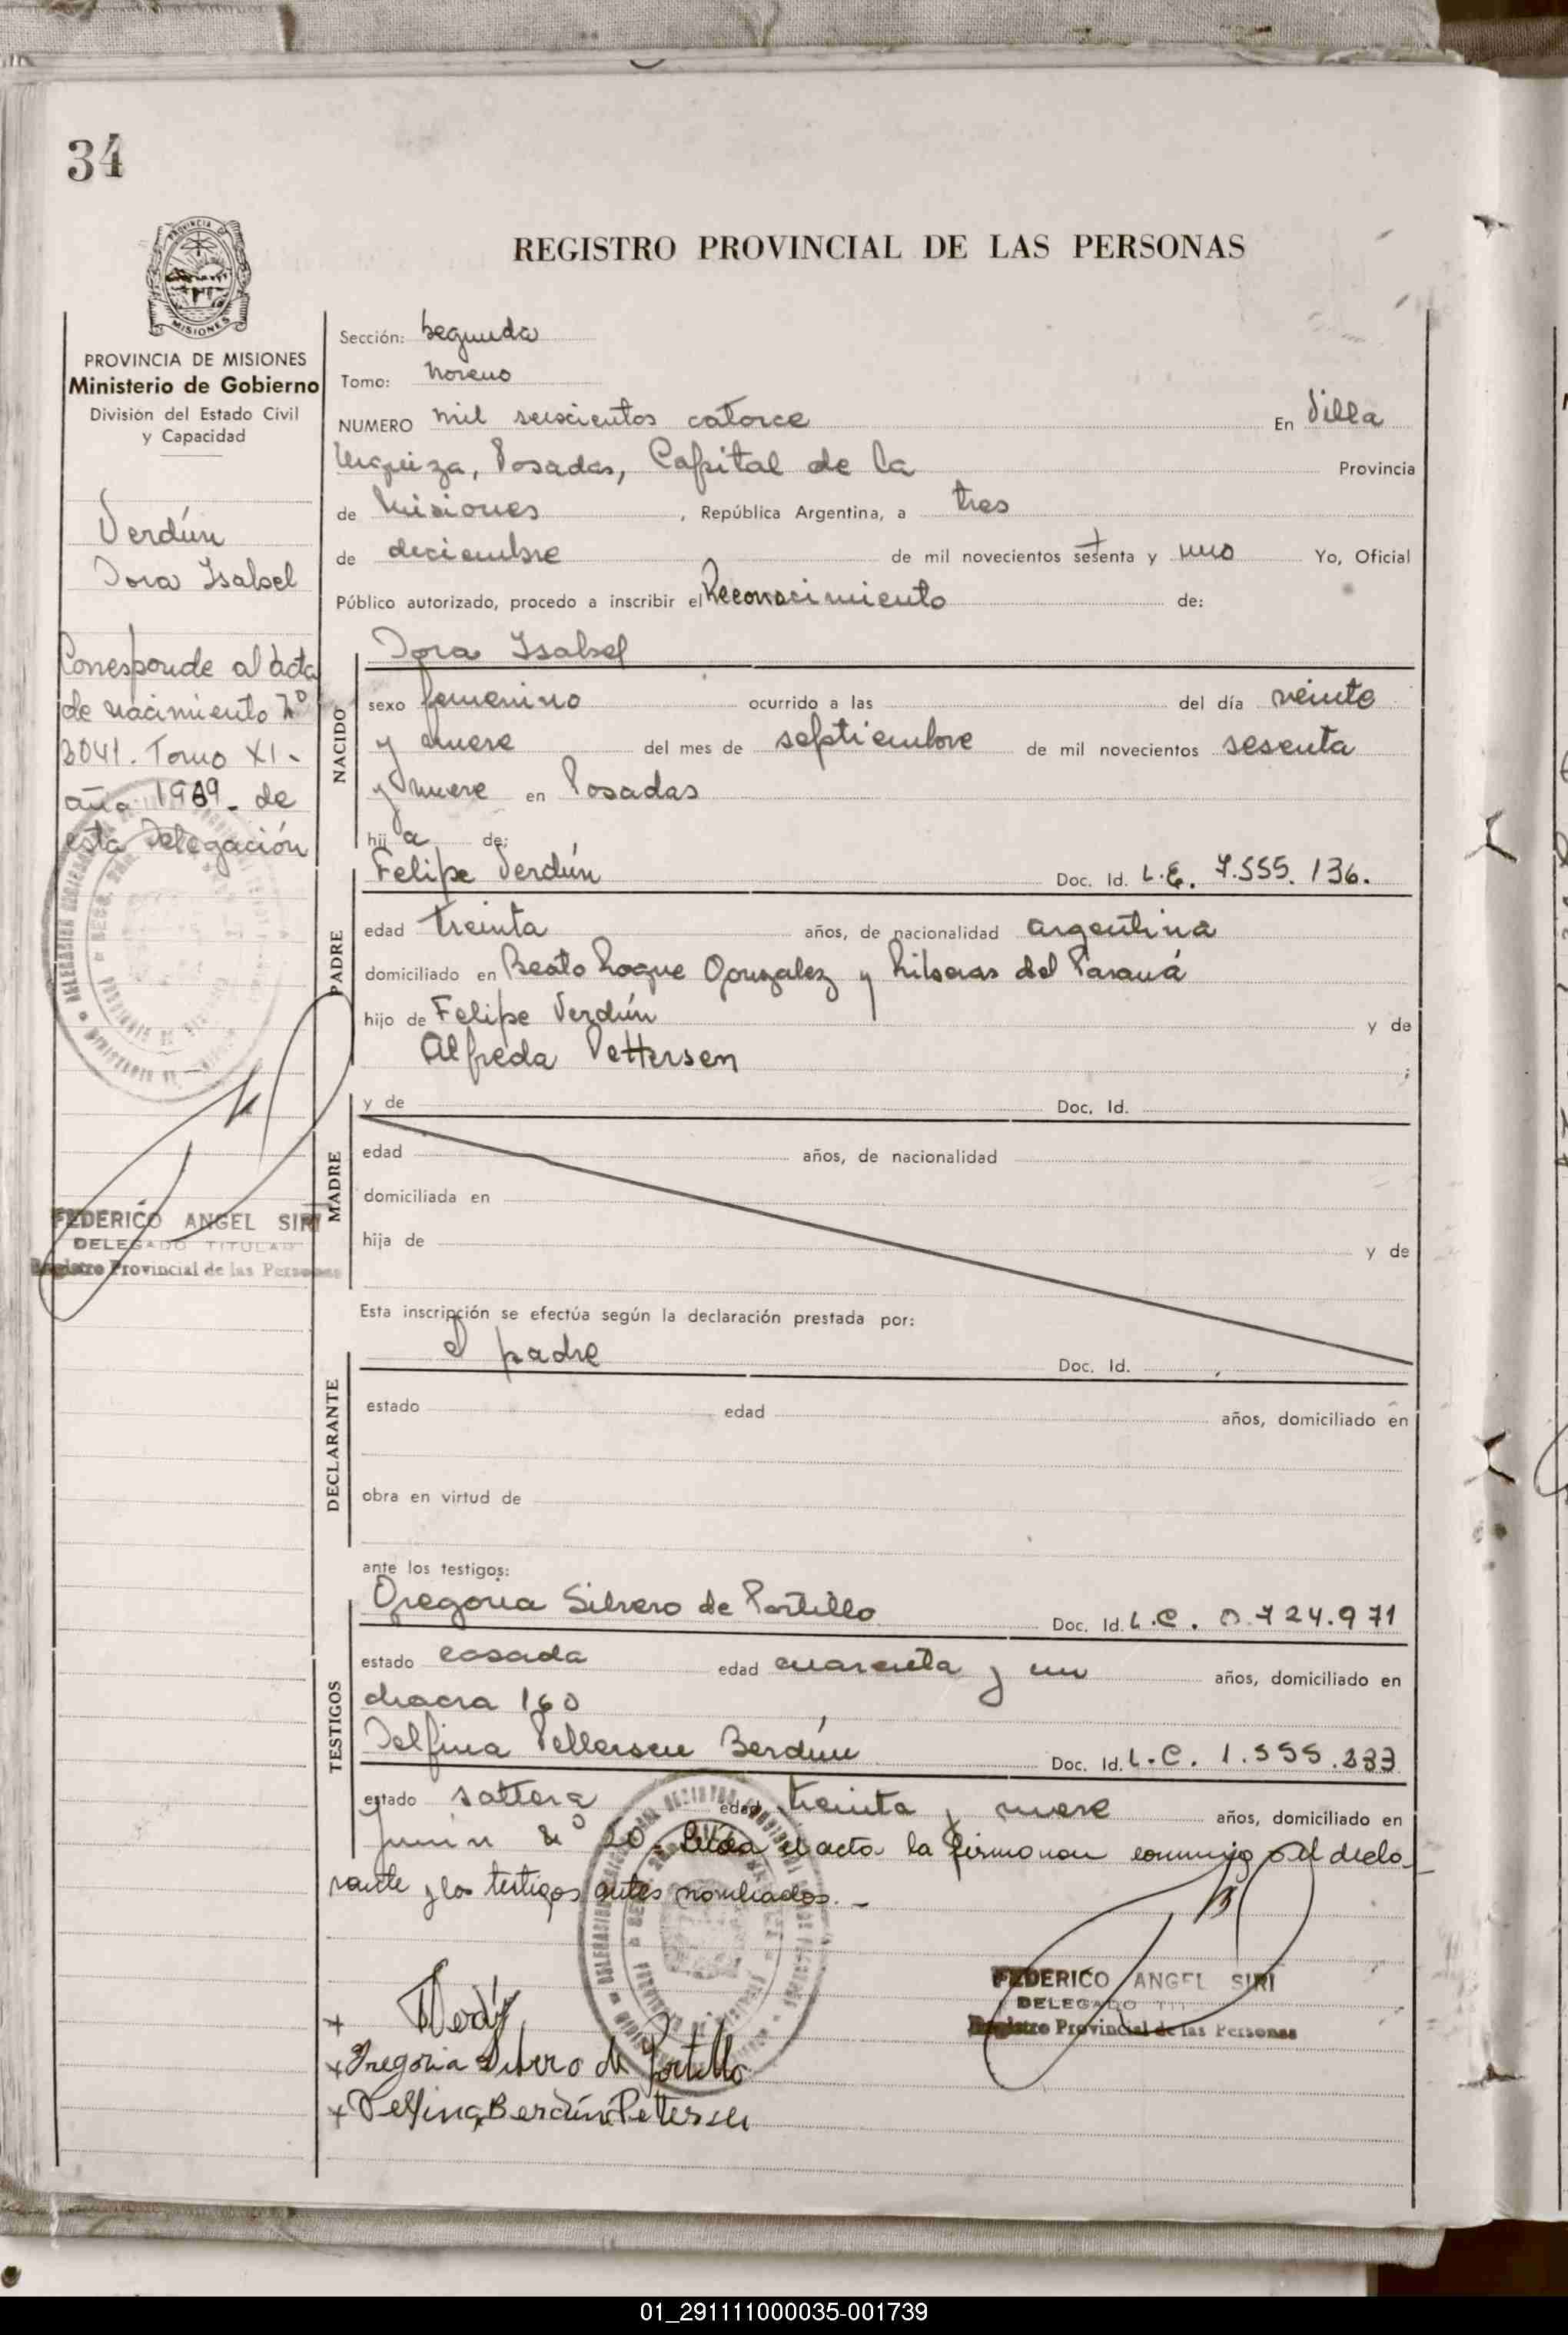 34
PROVINCIA DE MISIONES
Ministerio de Gobierno
División del Estado Civil
y Capacidad
Verdún
Dora Isabel
Corresponde al acta
de nacimiento Nº
2041. Tomo XI -
año 1969 - de
esta Delegación
FEDERICO ANGEL SIRI
DELEGADO TITULAR
Registro Provincial de las Personas
REGISTRO PROVINCIAL DE LAS PERSONAS
Sección: Segunda
Tomo: Noveno
NUMERO mil seiscientos catorce En Villa
Urquiza, Posadas, Capital de la Provincia
de Misiones, República Argentina, a tres
de diciembre de mil novecientos setenta y uno Yo, Oficial
Público autorizado, procedo a inscribir el Reconocimiento de:
Dora Isabel
NACIDO
sexo femenino ocurrido a las del día veinte
y nueve del mes de septiembre de mil novecientos sesenta
y nueve en Posadas
hija de:
Felipe Verdún Doc. Id. L.E. 7.555.136.
PADRE
edad treinta años, de nacionalidad argentina
domiciliado en Beato Roque Gonzalez y Riberas del Paraná
hijo de Felipe Verdún y de
Alfreda Pettersen ;
y de Doc. Id.
MADRE
edad años, de nacionalidad
domiciliada en
hija de y de
Esta inscripción se efectúa según la declaración prestada por:
el padre Doc. Id.
DECLARANTE
estado edad años, domiciliado en
obra en virtud de
ante los testigos:
Gregoria Silvero de Portillo Doc. Id. L.C. 0.724.971
TESTIGOS
estado casada edad cuarenta y un años, domiciliado en
chacra 160
Delfina Pettersen Berdún Doc. Id. L.C. 1.555.233
estado soltera edad treinta y nueve años, domiciliado en
Junín Nº 20 - Leída el acta la firmaron conmigo el decla
rante y los testigos antes nombrados. -
FEDERICO ANGEL SIRI
DELEGADO TIT
Registro Provincial de las Personas
+
+ Gregoria Silvero de Portillo
+ Delfina Berdún Petersen
01_291111000035-001739